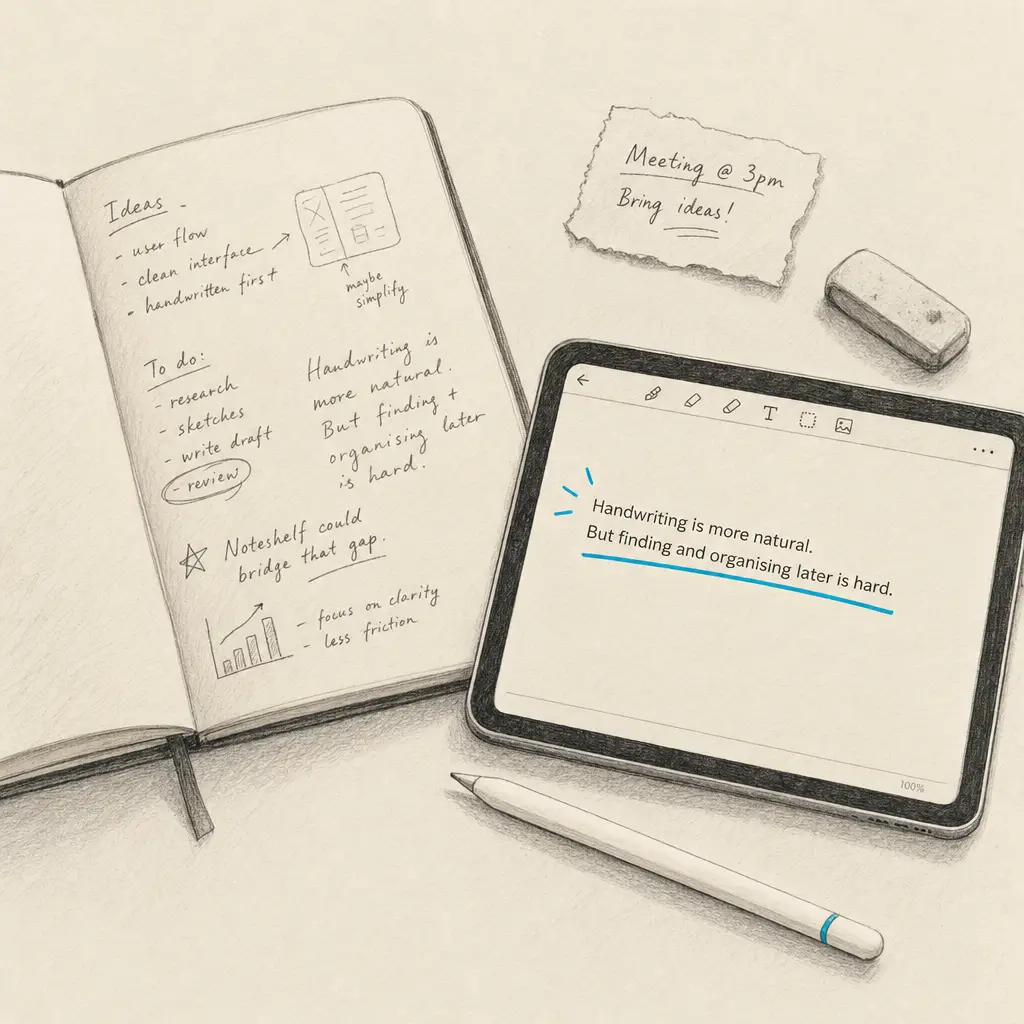 Ideas
- user flow
- clean interface
- handwritten first
maybe
simplify
To do:
- research
- sketches
- write draft
- review
Handwriting is
more natural.
But finding +
organising later
is hard.
Noteshelf could
bridge that gap.
- focus on clarity
- less friction
Meeting @ 3pm
Bring ideas!
T
Handwriting is more natural.
But finding and organising later is hard.
100%